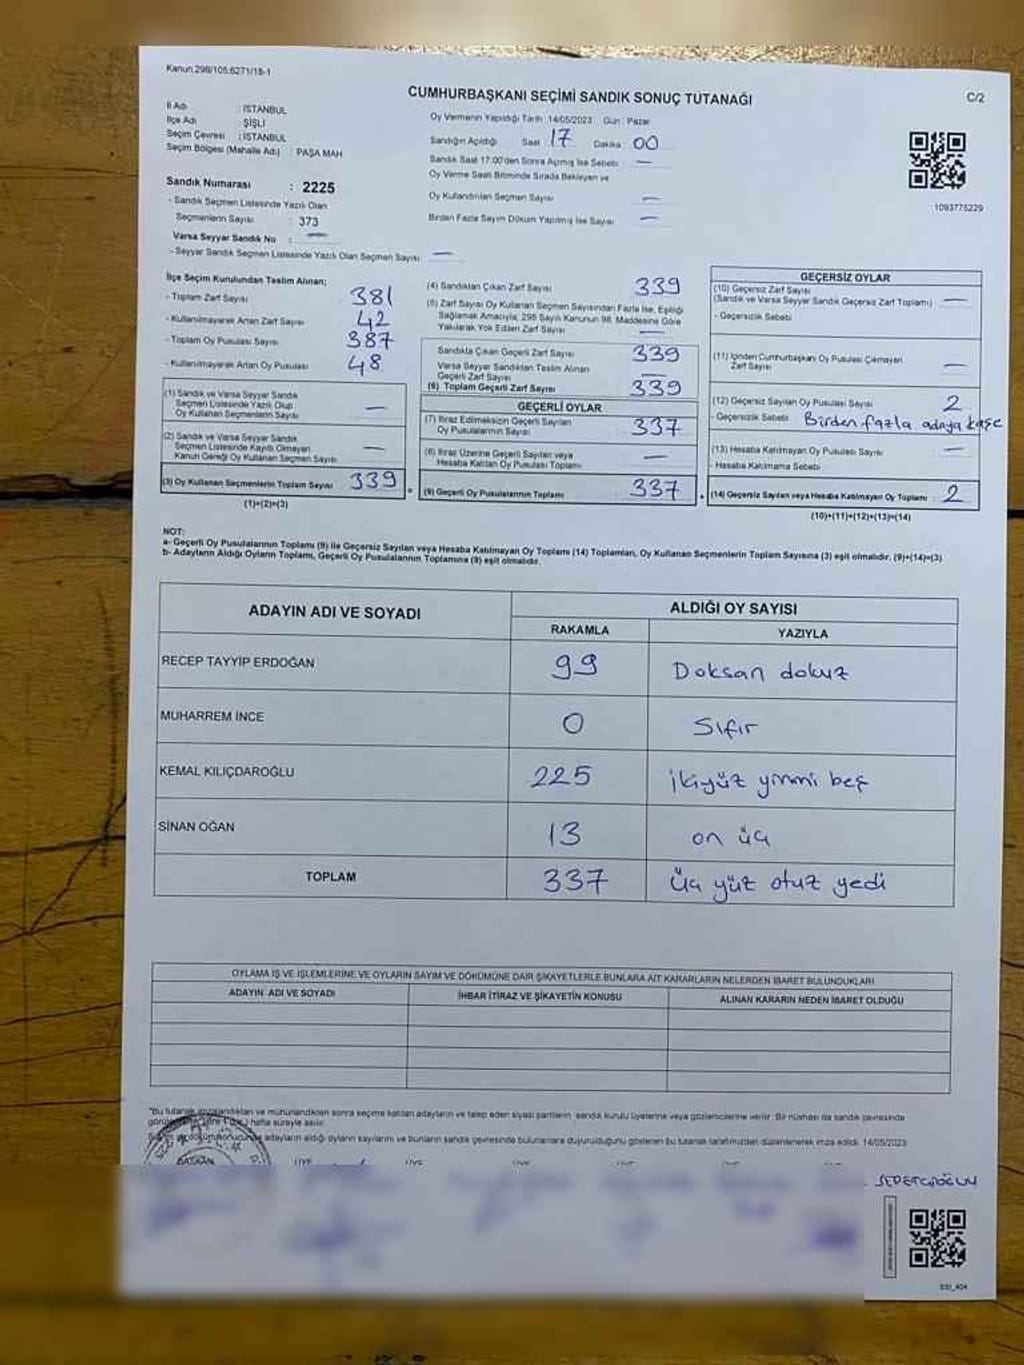 Kanun:298/105:6271/18-1
CUMHURBAŞKANI SEÇİMİ SANDIK SONUÇ TUTANAĞI
C/2
İl Adı : İSTANBUL
İlçe Adı : ŞİŞLİ
Seçim Çevresi : İSTANBUL
Seçim Bölgesi (Mahalle Adı) : PAŞA MAH
Oy Vermenin Yapıldığı Tarih :14/05/2023 Gün : Pazar
Sandığın Açıldığı Saat 17 Dakika 00
Sandık Saat 17:00'den Sonra Açılmış İse Sebebi —
Oy Verme Saati Bitiminde Sırada Bekleyen ve
Oy Kullandırılan Seçmen Sayısı —
Birden Fazla Sayım Döküm Yapılmış İse Sayısı —
1093775229
Sandık Numarası : 2225
- Sandık Seçmen Listesinde Yazılı Olan
Seçmenlerin Sayısı : 373
Varsa Seyyar Sandık No : —
- Seyyar Sandık Seçmen Listesinde Yazılı Olan Seçmen Sayısı —
İlçe Seçim Kurulundan Teslim Alınan;
- Toplam Zarf Sayısı 381
- Kullanılmayarak Artan Zarf Sayısı 42
- Toplam Oy Pusulası Sayısı 387
- Kullanılmayarak Artan Oy Pusulası 48
(1) Sandık ve Varsa Seyyar Sandık
Seçmen Listesinde Yazılı Olup
Oy Kullanan Seçmenlerin Sayısı —
(2) Sandık ve Varsa Seyyar Sandık
Seçmen Listesinde Kayıtlı Olmayan
Kanun Gereği Oy Kullanan Seçmen Sayısı —
(3) Oy Kullanan Seçmenlerin Toplam Sayısı 339
(1)+(2)=(3)
(4) Sandıktan Çıkan Zarf Sayısı 339
(5) Zarf Sayısı Oy Kullanan Seçmen Sayısından Fazla İse, Eşitliği
Sağlamak Amacıyla, 298 Sayılı Kanunun 98. Maddesine Göre
Yakılarak Yok Edilen Zarf Sayısı —
Sandıkta Çıkan Geçerli Zarf Sayısı 339
Varsa Seyyar Sandıktan Teslim Alınan
Geçerli Zarf Sayısı —
(6) Toplam Geçerli Zarf Sayısı 339
GEÇERLİ OYLAR
(7) İtiraz Edilmeksizin Geçerli Sayılan
Oy Pusulalarının Sayısı 337
(8) İtiraz Üzerine Geçerli Sayılan veya
Hesaba Katılan Oy Pusulası Toplamı —
(9) Geçerli Oy Pusulalarının Toplamı 337
GEÇERSİZ OYLAR
(10) Geçersiz Zarf Sayısı
(Sandık ve Varsa Seyyar Sandık Geçersiz Zarf Toplamı) —
- Geçersizlik Sebebi
(11) İçinden Cumhurbaşkanı Oy Pusulası Çıkmayan
Zarf Sayısı —
(12) Geçersiz Sayılan Oy Pusulası Sayısı 2
- Geçersizlik Sebebi Birden fazla adaya kaşe
(13) Hesaba Katılmayan Oy Pusulası Sayısı —
- Hesaba Katılmama Sebebi
(14) Geçersiz Sayılan veya Hesaba Katılmayan Oy Toplamı : 2
(10)+(11)+(12)+(13)=(14)
NOT:
a- Geçerli Oy Pusulalarının Toplamı (9) ile Geçersiz Sayılan veya Hesaba Katılmayan Oy Toplamı (14) Toplamları, Oy Kullanan Seçmenlerin Toplam Sayısına (3) eşit olmalıdır. (9)+(14)=(3)
b- Adayların Aldığı Oyların Toplamı, Geçerli Oy Pusulalarının Toplamına (9) eşit olmalıdır.
ADAYIN ADI VE SOYADI
ALDIĞI OY SAYISI
RAKAMLA YAZIYLA
RECEP TAYYİP ERDOĞAN 99 Doksan dokuz
MUHARREM İNCE 0 Sıfır
KEMAL KILIÇDAROĞLU 225 ikiyüz yirmi beş
SİNAN OĞAN 13 on üç
TOPLAM 337 üç yüz otuz yedi
OYLAMA İŞ VE İŞLEMLERİNE VE OYLARIN SAYIM VE DÖKÜMÜNE DAİR ŞİKAYETLERLE BUNLARA AİT KARARLARIN NELERDEN İBARET BULUNDUKLARI
ADAYIN ADI VE SOYADI İHBAR İTİRAZ VE ŞİKAYETİN KONUSU ALINAN KARARIN NEDEN İBARET OLDUĞU
"Bu tutanak imzalandıktan ve mühürlendikten sonra seçime katılan adayların ve talep eden siyasi partilerin sandık kurulu üyelerine veya gözlemcilerine verilir. Bir nüshası da sandık çevresinde
hafta süreyle asılır.
adayların aldığı oyların sayılarını ve bunların sandık çevresinde bulunanlara duyurulduğunu gösteren bu tutanak tarafımızdan düzenlenerek imza edildi. 14/05/2023
BAŞKAN ÜYE ÜYE ÜYE ÜYE ÜYE